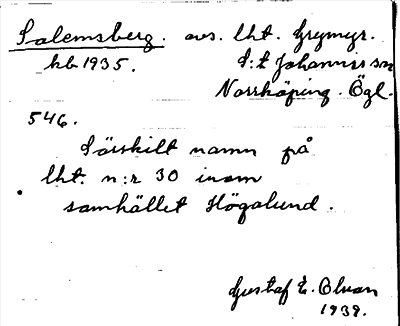 Salemsberg. avs. lht. Grymyr.
kb 1935. S:t Johannis sn
Norrköping. Ögl.
546.
Särskilt namn på
lht. n:r 30 inom
samhället Högalund.
Gustaf E.
1939.